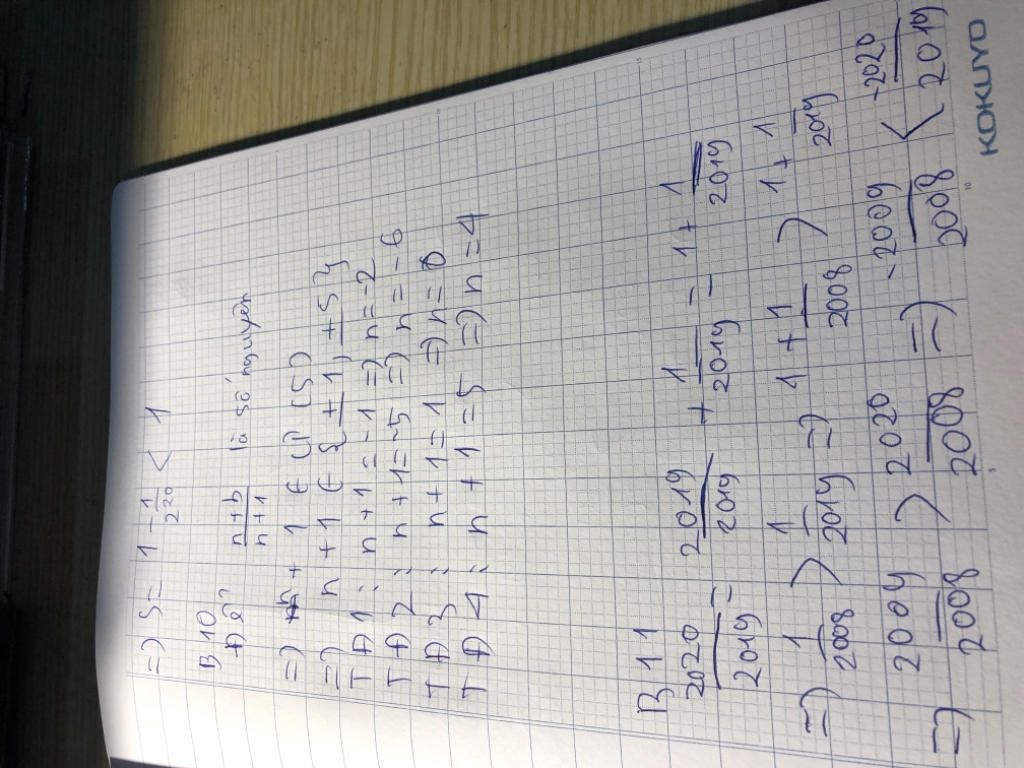 => S = 1 - 1/2^20 < 1
B10
Để n+5/n+1 là số nguyên
=> n + 1 ∈ Ư (5)
=> n + 1 ∈ { ±1, ±5 }
TĐ1: n+1 = -1 => n = -2
TĐ2: n+1 = -5 => n = -6
TĐ3: n+1 = 1 => n = 0
TĐ4: n+1 = 5 => n = 4
B11
2020/2019 = 2019/2019 + 1/2019 = 1 + 1/2019
=> 1/2008 > 1/2019 => 1 + 1/2008 > 1 + 1/2019
=> 2009/2008 > 2020/2008 => -2009/2008 < -2020/2019
KOKUYO